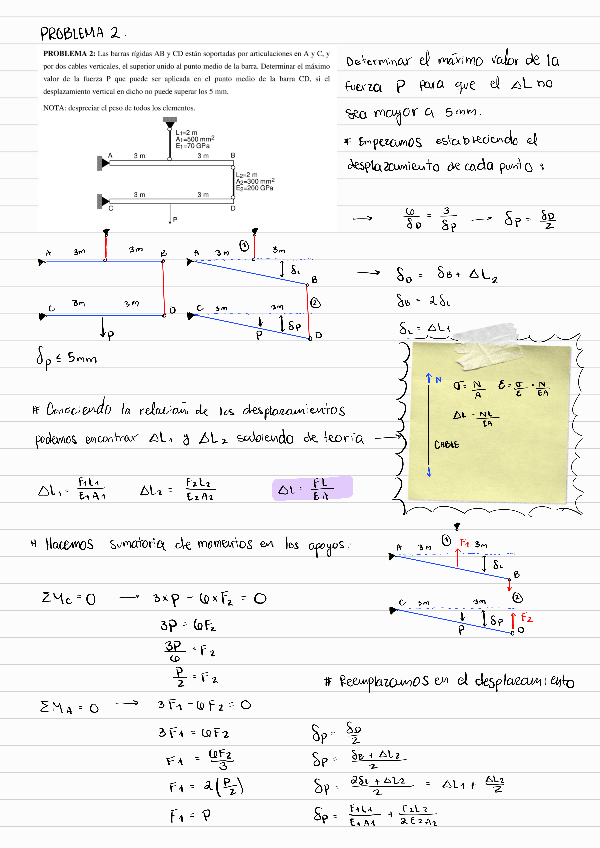 PROBLEMA 2.
PROBLEMA 2: Las barras rígidas AB y CD están soportadas por articulaciones en A y C, y
por dos cables verticales, el superior unido al punto medio de la barra. Determinar el máximo
valor de la fuerza P que puede ser aplicada en el punto medio de la barra CD, si el
desplazamiento vertical en dicho no puede superar los 5 mm.
NOTA: despreciar el peso de todos los elementos.
L1=2 m
A1=500 mm²
E1=70 GPa
A 3 m 3 m B
L2=2 m
A2=300 mm²
E2=200 GPa
3 m 3 m
C D
P
Determinar el máximo valor de la
fuerza P para que el ΔL no
sea mayor a 5mm.
* Empezamos estableciendo el
desplazamiento de cada punto:
→ 6/δD = 3/δP → δP = δD/2
→ δD = δB + ΔL2
δB = 2δL
δL = ΔL1
A 3m 3m B
C 3m 3m D
P
A 3m ① 3m
δL
B
②
C 3m 3m
P δP
D
δp ≤ 5mm
N
σ = N/A ε = σ/E · N/EA
ΔL = NL/EA
CABLE
* Conociendo la relación de los desplazamientos
podemos encontrar ΔL1 y ΔL2 sabiendo de teoría →
ΔL1 = F1L1/E1A1 ΔL2 = F2L2/E2A2 ΔL = FL/EA
* Hacemos sumatoria de momentos en los apoyos.
A 3m ① F1 3m
δL
B
②
C 3m 3m
P δP F2
D
ΣMc = 0 → 3×P − 6×F2 = 0
3P = 6F2
3P/6 = F2
P/2 = F2
ΣMA = 0 → 3F1 − 6F2 = 0
3F1 = 6F2
F1 = 6F2/3
F1 = 2(P/2)
F1 = P
* Reemplazamos en el desplazamiento
δP = δD/2
δP = δB + ΔL2/2
δP = 2δL + ΔL2/2 = ΔL1 + ΔL2/2
δP = F1L1/E1A1 + F2L2/2E2A2